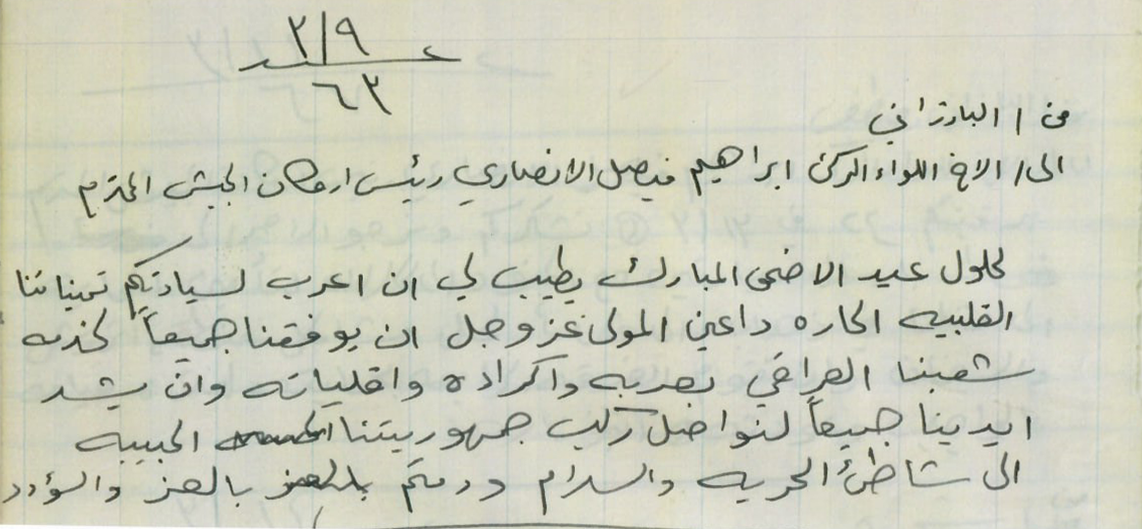 ٢/٩
٦٣
من / البارزاني
الى / الاخ اللواء الركن ابراهيم فيصل الانصاري رئيس اركان الجيش المحترم
لحلول عيد الاضحى المبارك يطيب لي ان اعرب لسيادتكم تمنياتنا
القلبيه الحاره داعين المولى عز وجل ان يوفقنا جميعاً لخدمه
شعبنا العراقي بعربه واكراده واقلياته وان يشد
ايدينا جميعاً لنواصل ركب جمهوريتنا الحبيبه
الى شاطئ الحريه والسلام ودمتم بالعز والسؤدد